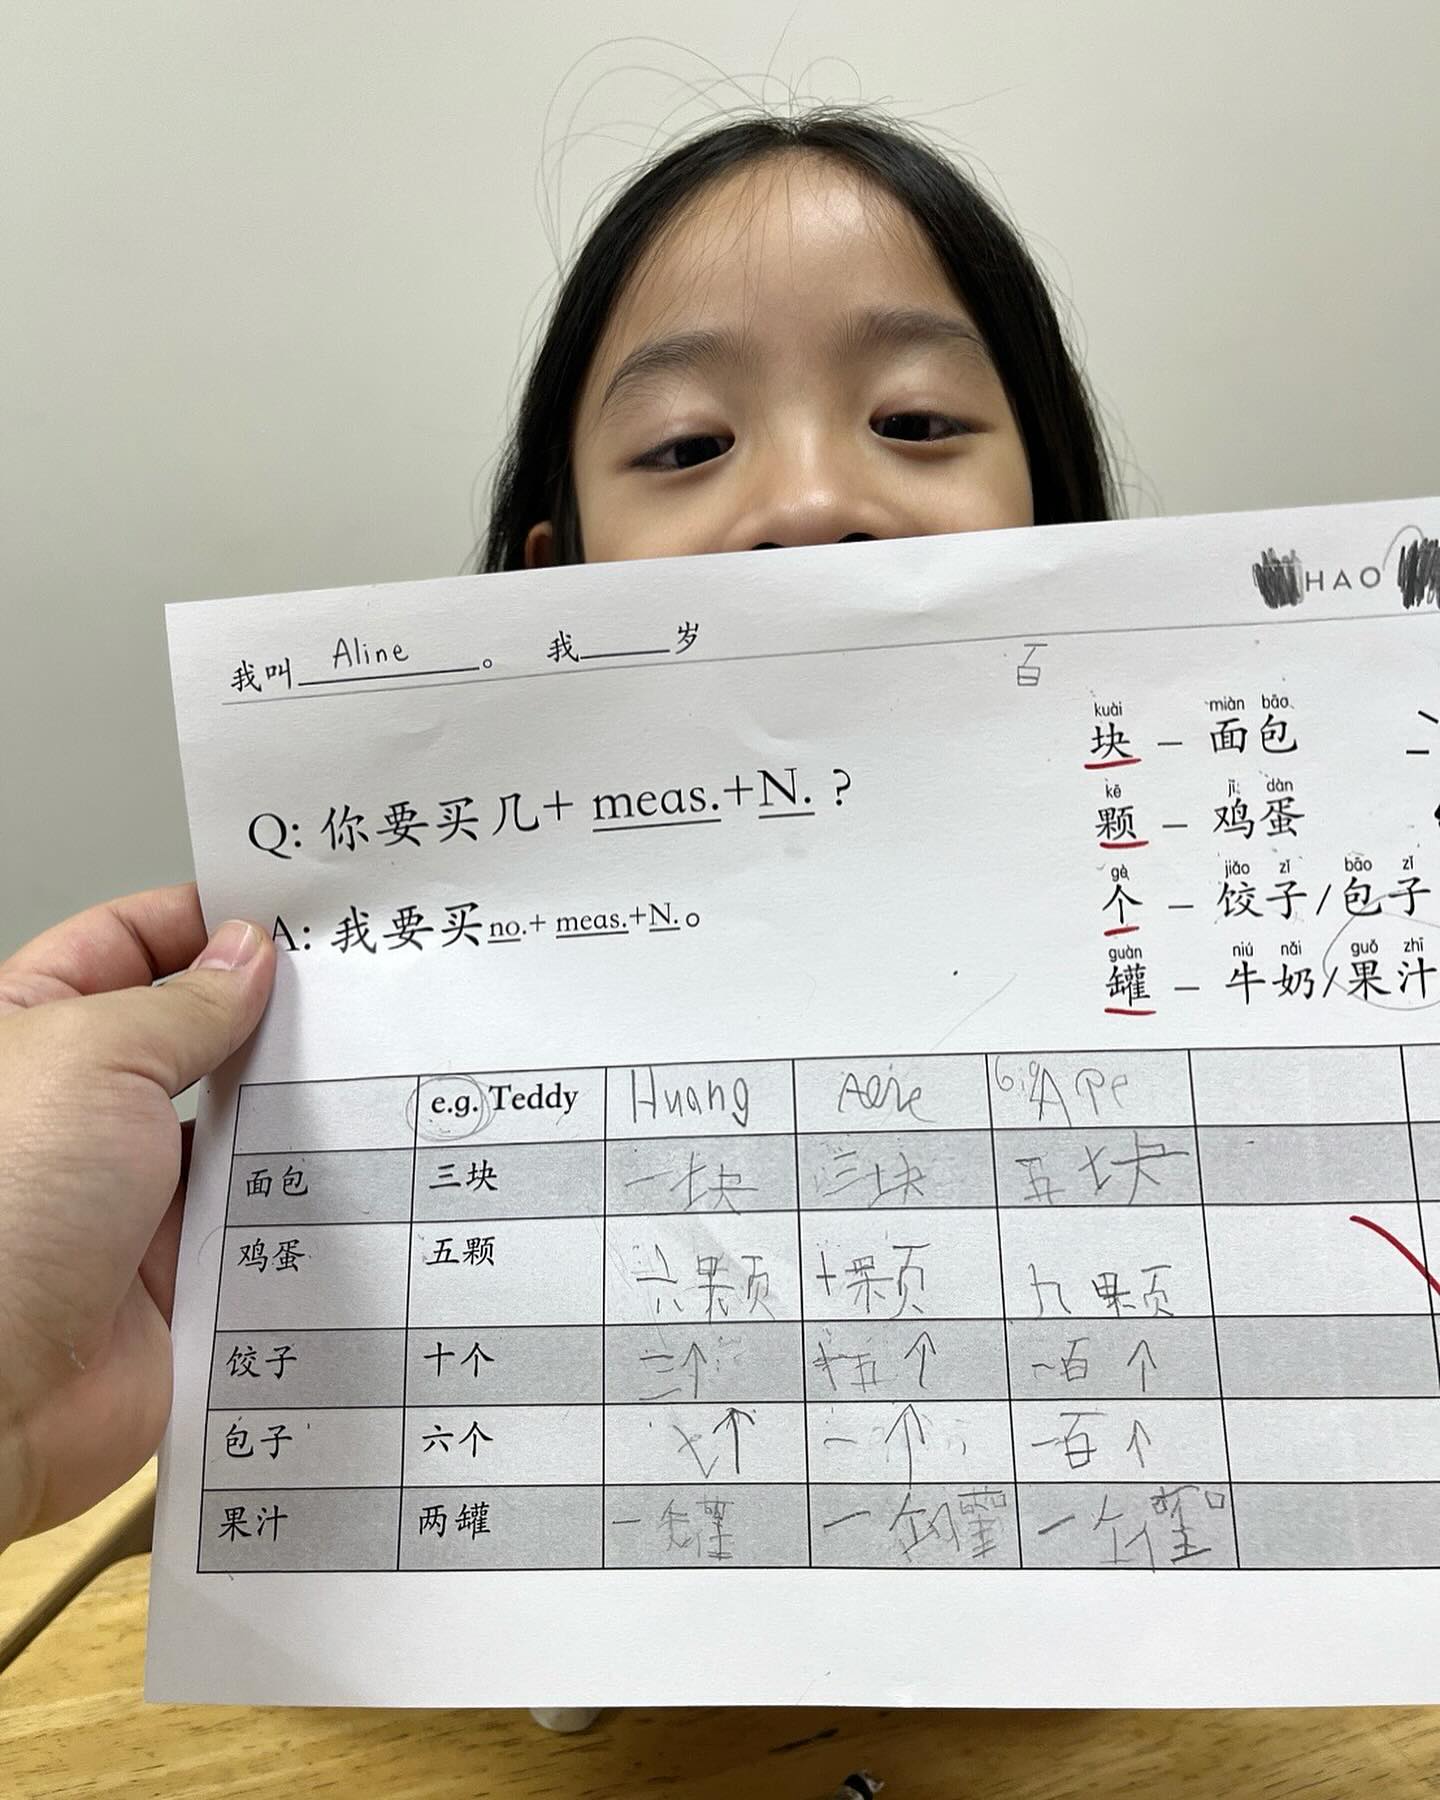 HAO
我叫 Aline 。 我____岁
百
Q: 你要买几+ meas.+N. ?
A: 我要买no.+ meas.+N.。
kuài miàn bāo
块 – 面包
kē jī dàn
颗 – 鸡蛋
gè jiǎo zǐ bāo zǐ
个 – 饺子/包子
guàn niú nǎi guǒ zhī
罐 – 牛奶/果汁
e.g. Teddy Huang Big Ape
面包 三块 一块 三块 五块
鸡蛋 五颗 六颗 十颗 九颗
饺子 十个 三个 十五个 一百个
包子 六个 七个 一个 一百个
果汁 两罐 一罐 一罐 一罐